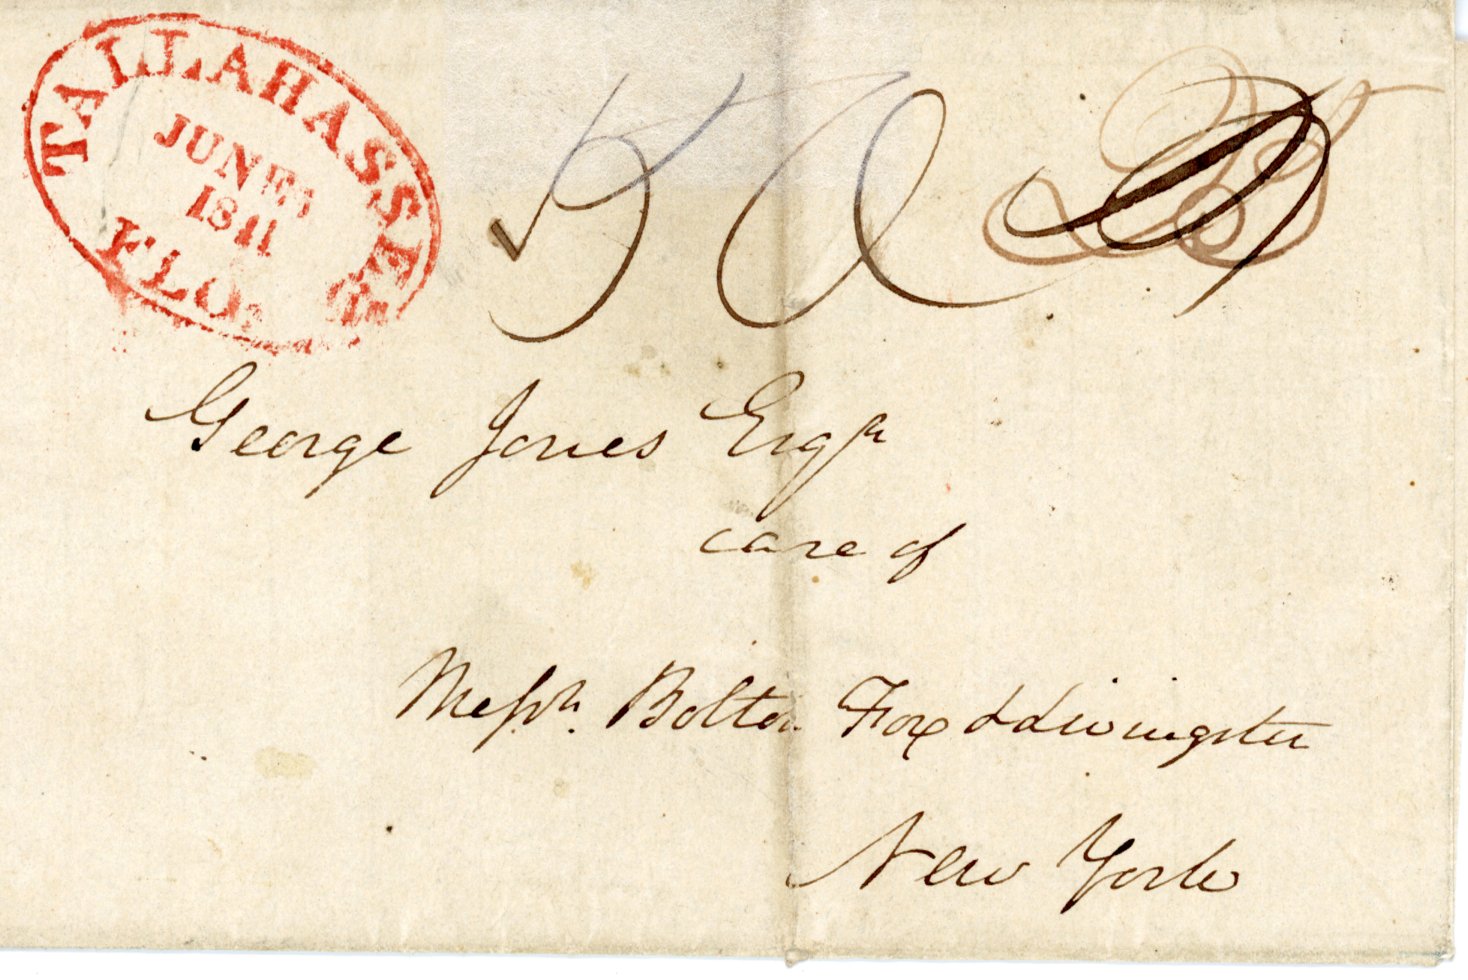 TALLAHASSEE
JUNE
1841
FLOA
50
George Jones Esqr
care of
Messrs. Bolton Fox & Livingston
New York